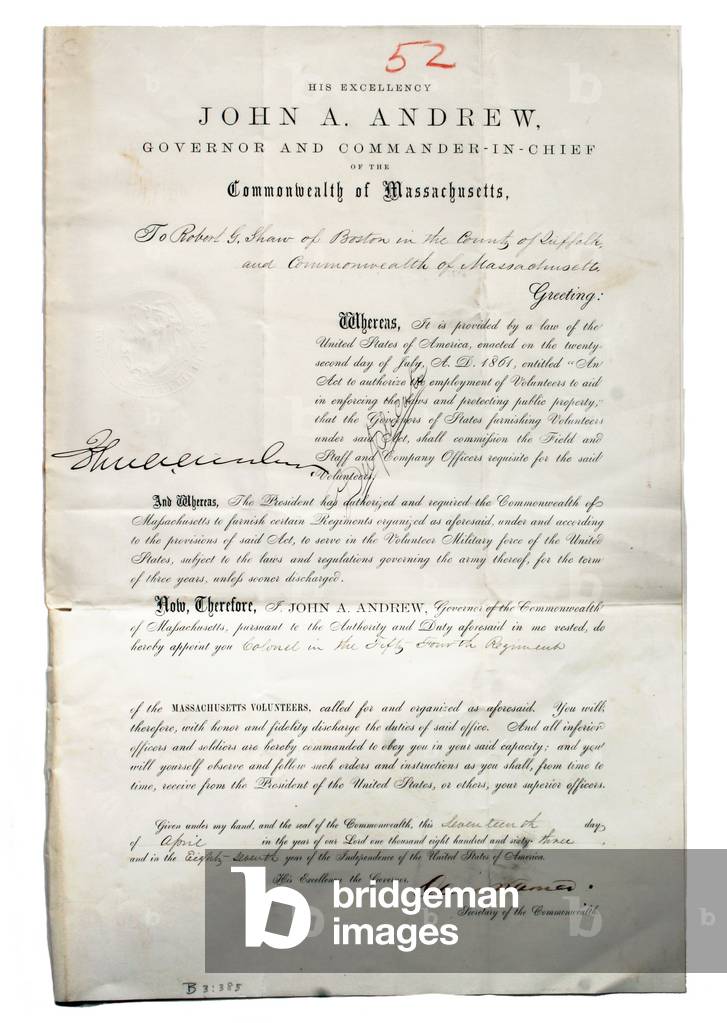 52
HIS EXCELLENCY
JOHN A. ANDREW,
GOVERNOR AND COMMANDER-IN-CHIEF
OF THE
Commonwealth of Massachusetts,
To Robert G. Shaw of Boston in the County of Suffolk,
and Commonwealth of Massachusetts.
Greeting:
Whereas, It is provided by a law of the
United States of America, enacted on the twenty-
second day of July, A. D. 1861, entitled "An
Act to authorize the employment of Volunteers to aid
in enforcing the laws and protecting public property,"
that the Governors of States furnishing Volunteers
under said Act, shall commission the Field and
Staff and Company Officers requisite for the said
Volunteers:
Duplicate
And Whereas, The President has authorized and required the Commonwealth of
Massachusetts to furnish certain Regiments organized as aforesaid, under and according
to the provisions of said Act, to serve in the Volunteer Military force of the United
States, subject to the laws and regulations governing the army thereof, for the term
of three years, unless sooner discharged.
Now, Therefore, I, JOHN A. ANDREW, Governor of the Commonwealth
of Massachusetts, pursuant to the Authority and Duty aforesaid in me vested, do
hereby appoint you Colonel in the Fifty Fourth Regiment
of the MASSACHUSETTS VOLUNTEERS, called for and organized as aforesaid. You will
therefore, with honor and fidelity discharge the duties of said office. And all inferior
officers and soldiers are hereby commanded to obey you in your said capacity; and you
will yourself observe and follow such orders and instructions as you shall, from time to
time, receive from the President of the United States, or others, your superior officers.
Given under my hand, and the seal of the Commonwealth, this Seventeenth day
of April in the year of our Lord one thousand eight hundred and sixty-three
and in the Eighty Seventh year of the Independence of the United States of America.
His Excellency the Governor,
Warner.
Secretary of the Commonwealth.
B 3:385
b bridgeman
images